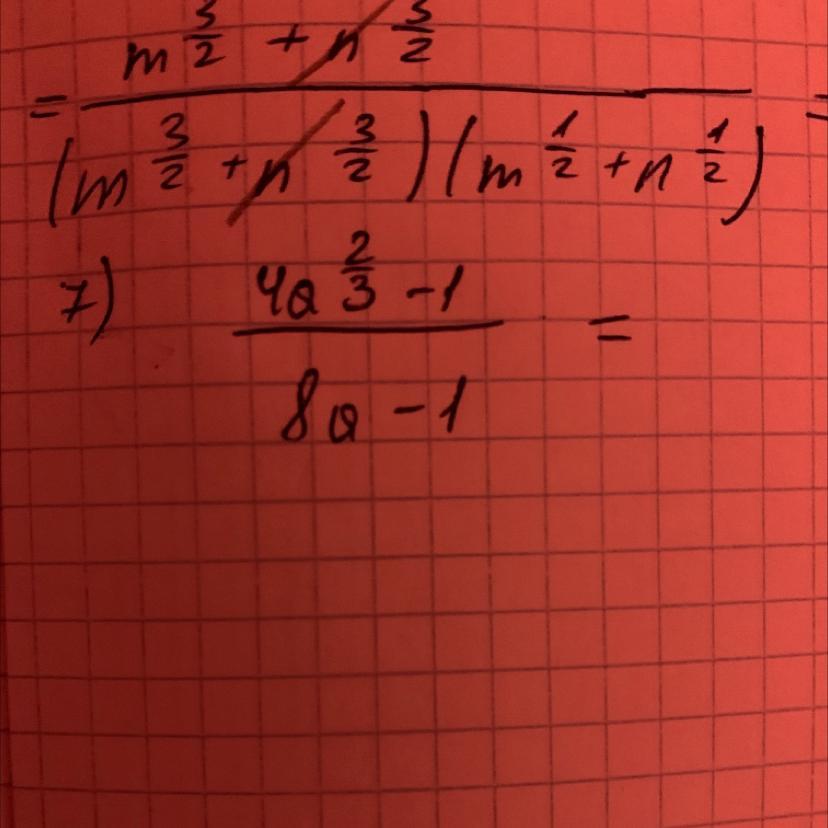 = m^{3/2} + n^{3/2} / (m^{3/2} + n^{3/2})(m^{1/2} + n^{1/2}) =
7) 4a^{2/3} - 1 / 8a - 1 =